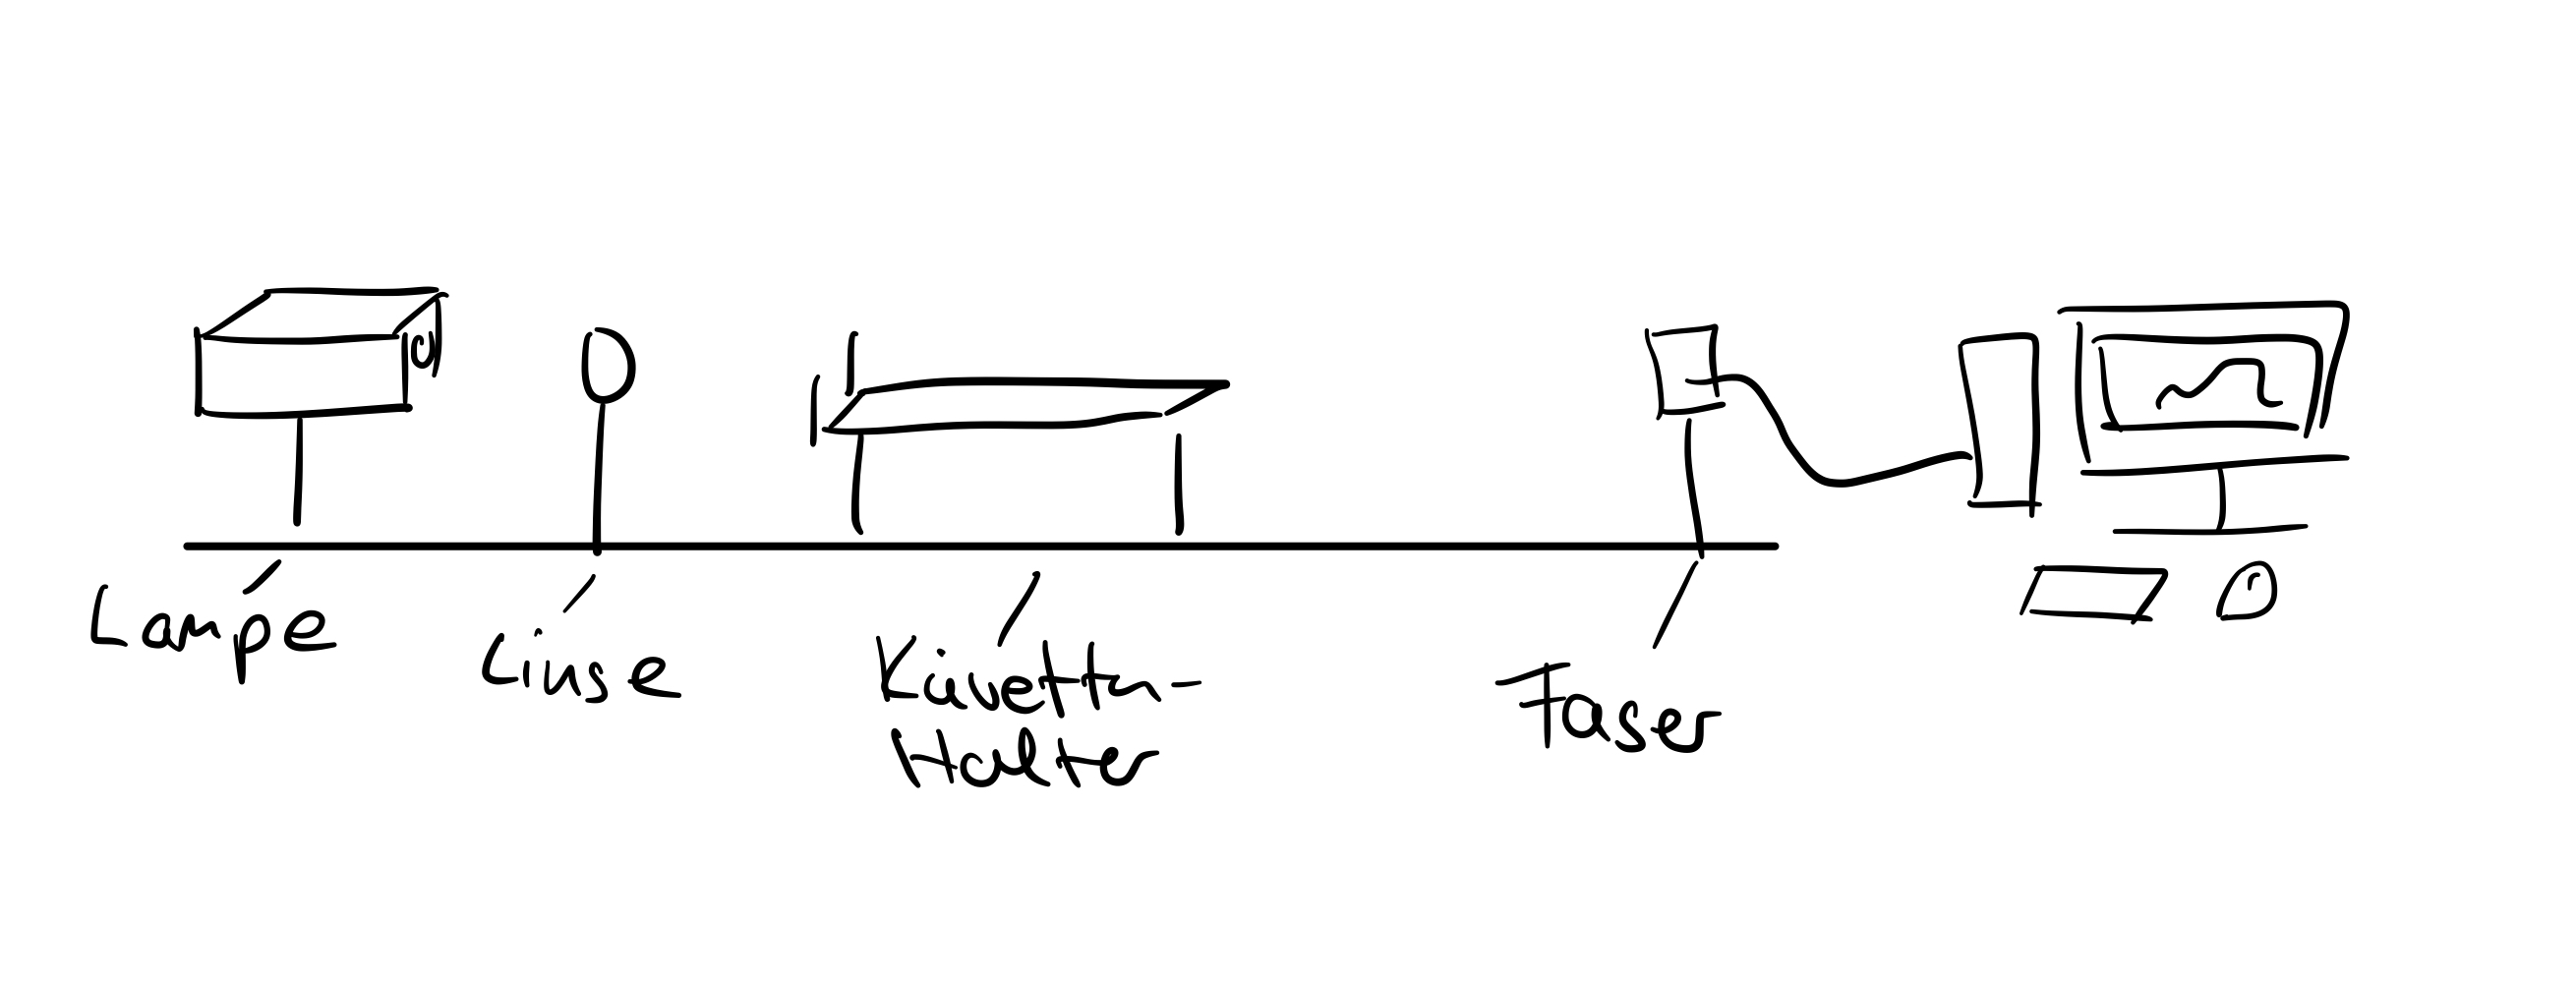 Lampe
Linse
Küvetten-
Halter
Faser